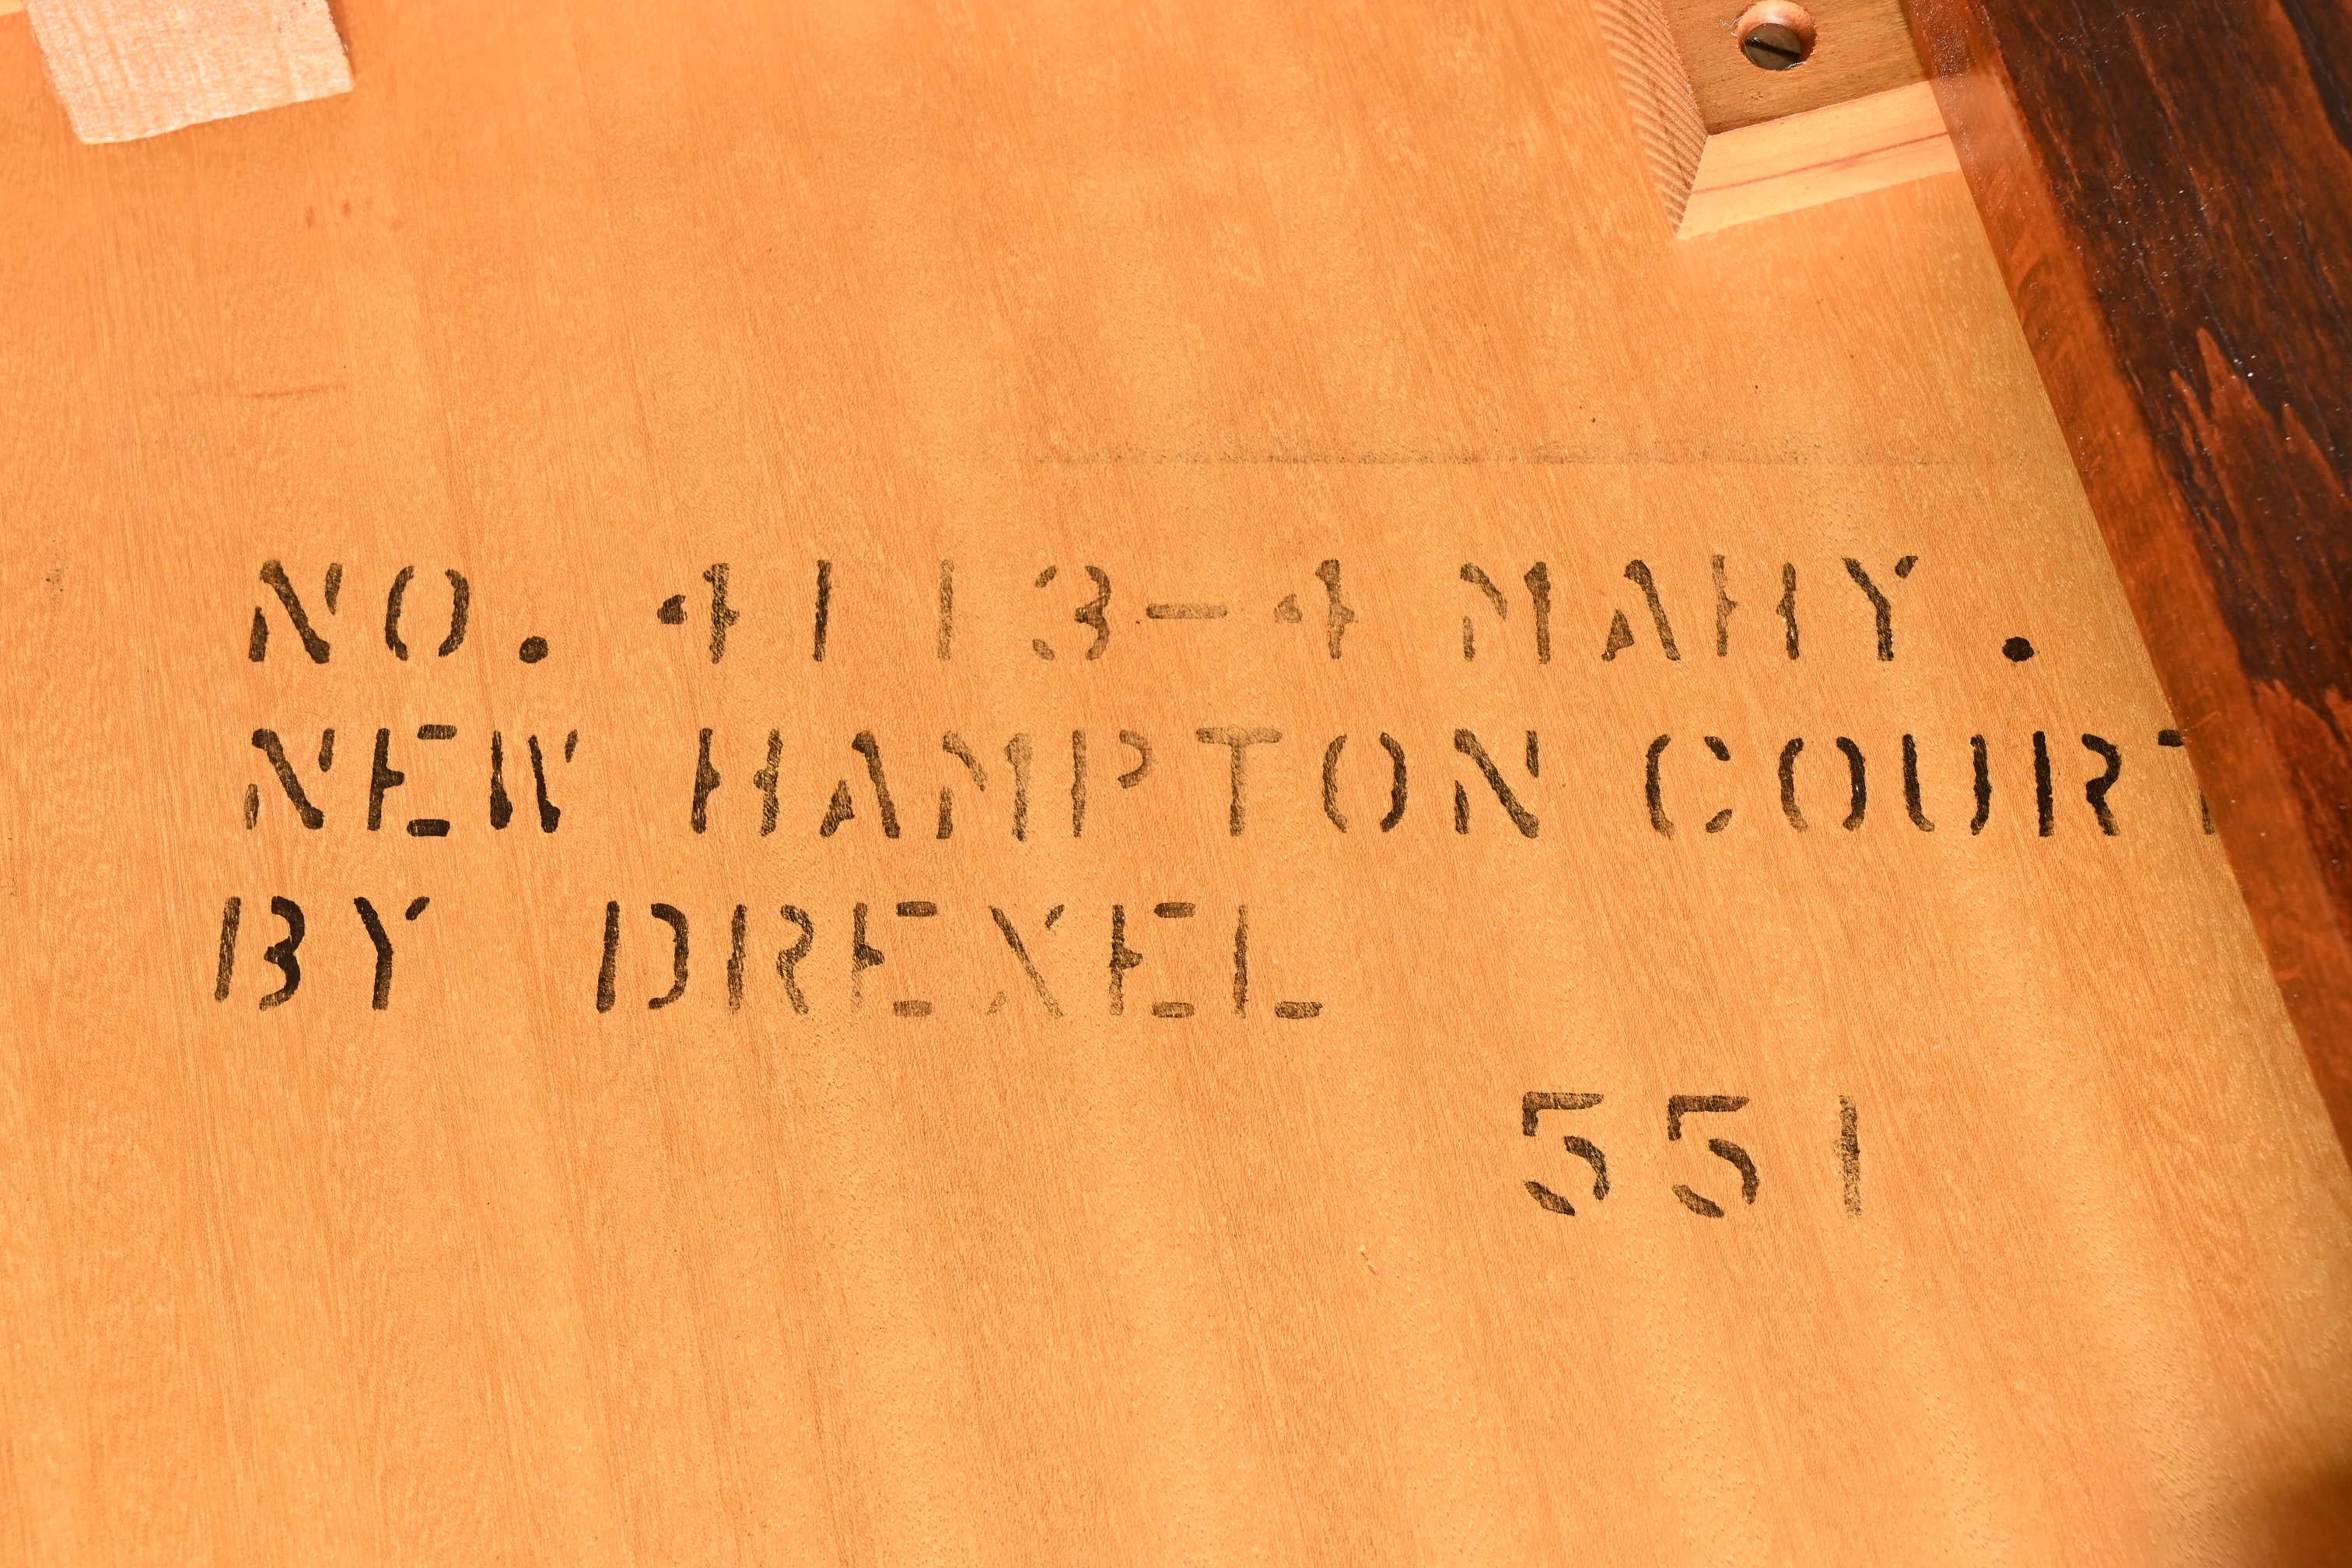 NO. 4113-4 MAHY.
NEW HAMPTON COURT
BY DREXEL
551